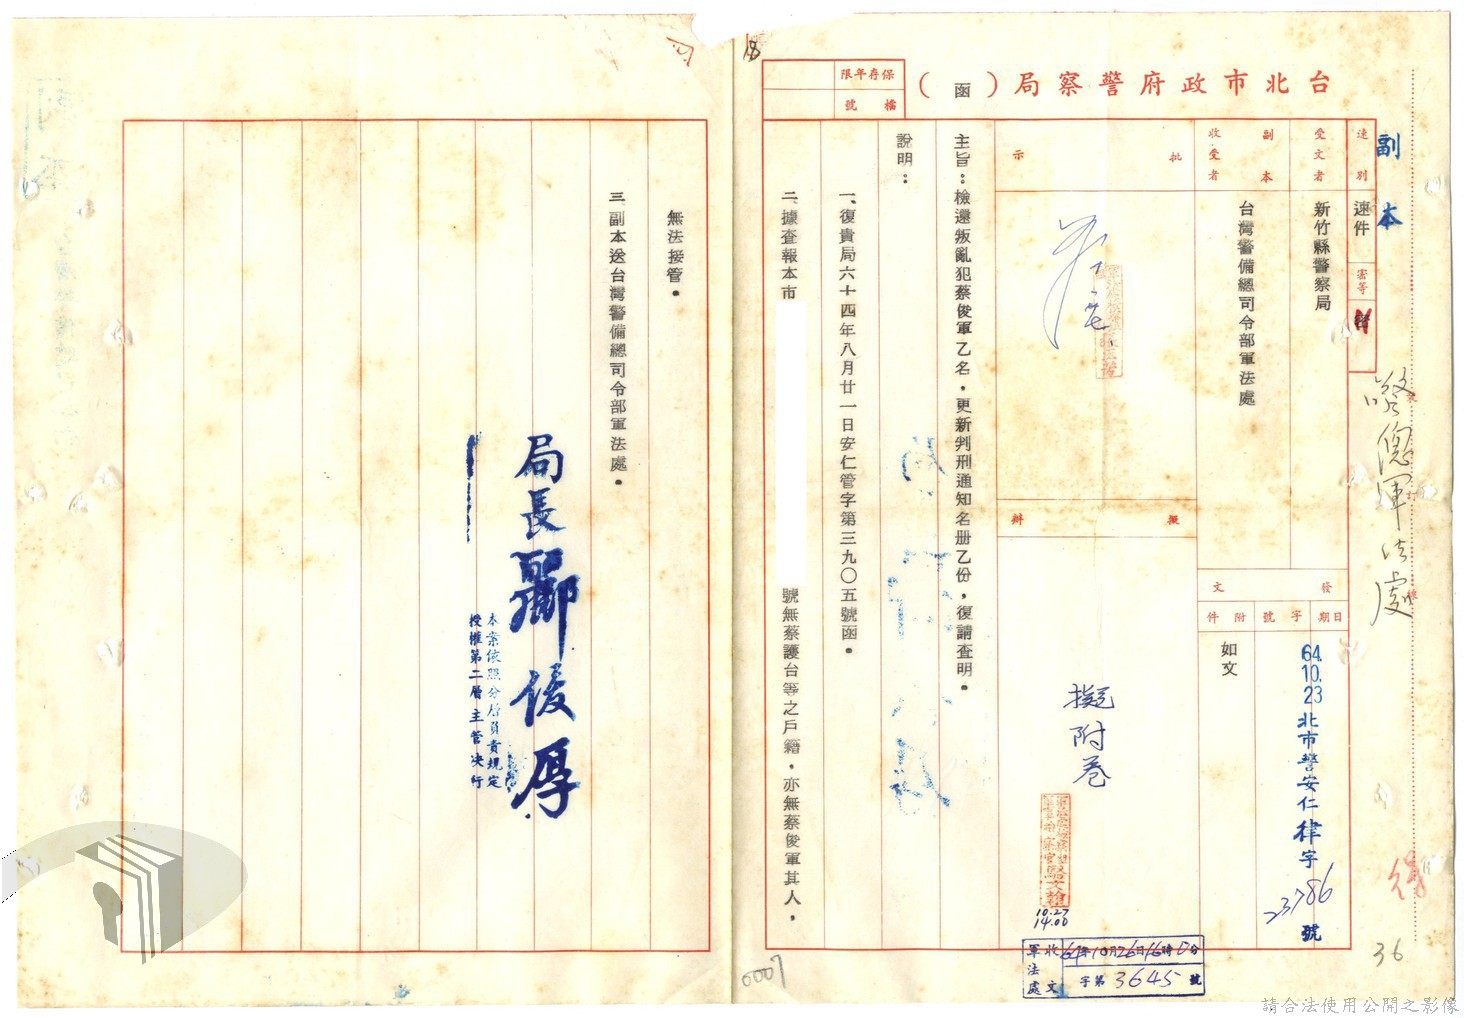 副本
台北市政府警察局(函)
保存年限
檔號
速別
速件
密等
受文者
新竹縣警察局
副本收受者
台灣警備總司令部軍法處
發文
日期
64.10.23
字號
北市警安仁律字
23786
號
附件
如文
批示
擬辦
擬附卷
10.27
14.00
主旨：檢還叛亂犯蔡俊軍乙名，更新判刑通知名册乙份，復請查明。
說明：
一、復貴局六十四年八月廿一日安仁管字第三九〇五號函。
二、據查報本市
號無蔡護台等之戶籍，亦無蔡俊軍其人，
無法接管。
三、副本送台灣警備總司令部軍法處。
局長酈俊厚
本案依照分層負責規定
授權第二層主管決行
警總軍法處
軍法處
收文
64年10月26日16時0分
字第3645號
0007
36
請合法使用公開之影像